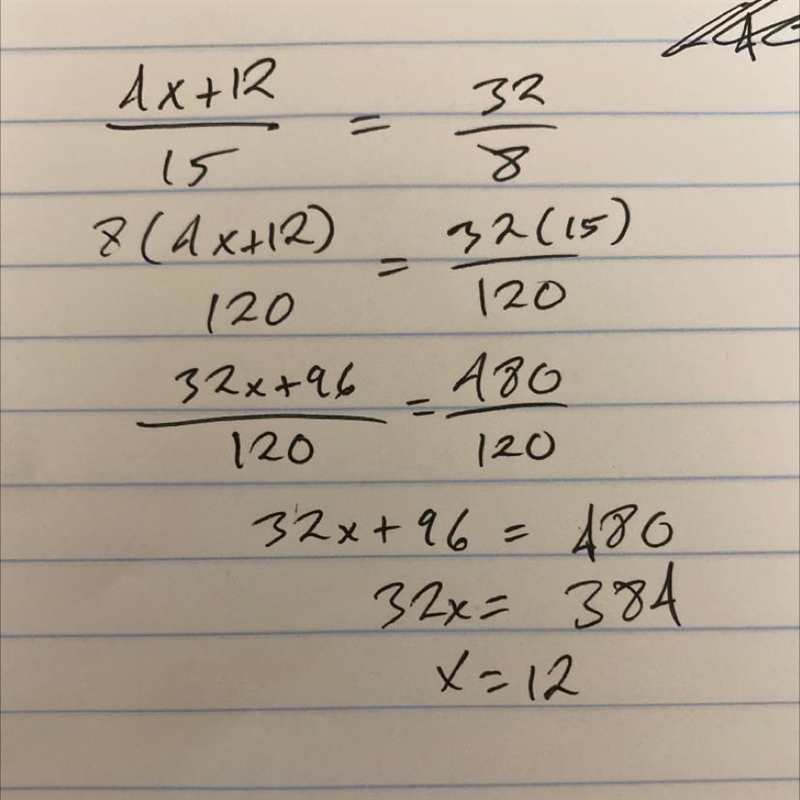 4x+12/15 = 32/8
8(4x+12)/120 = 32(15)/120
32x+96/120 = 480/120
32x+96 = 480
32x = 384
x=12